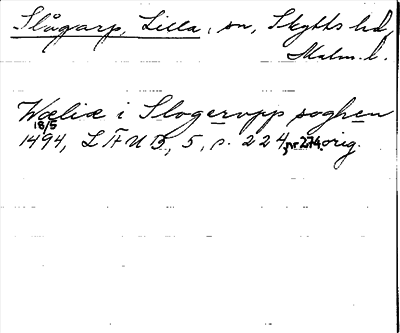 Slågarp, Lilla, sn, Skytts hd,
Malm. l.
Wæliæ i Slogerupp soghen
18/5
1494, LÄUB, 5, s. 224, nr 274. orig.